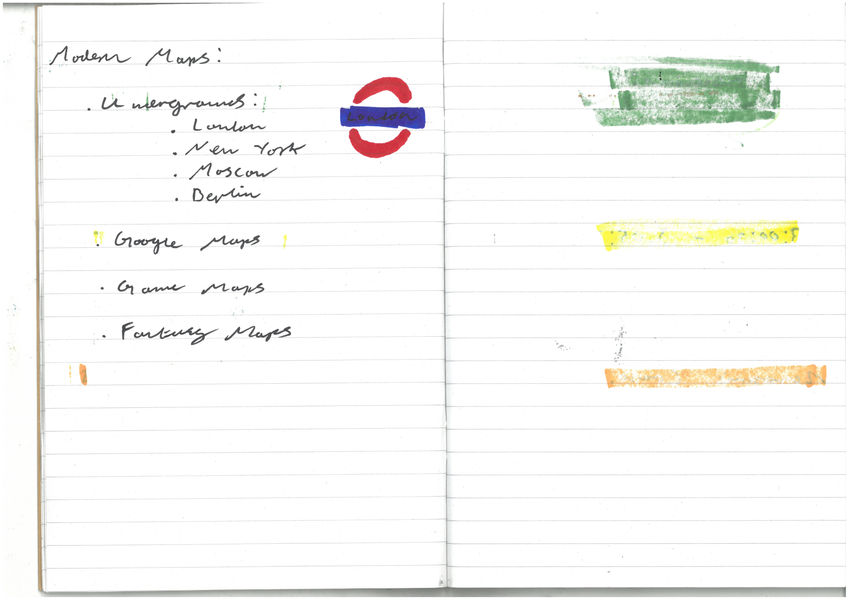 Modern Maps:
. Undergrounds:
London
. London
. New York
. Moscow
. Berlin
. Google Maps
. Game Maps
. Fantasy Maps